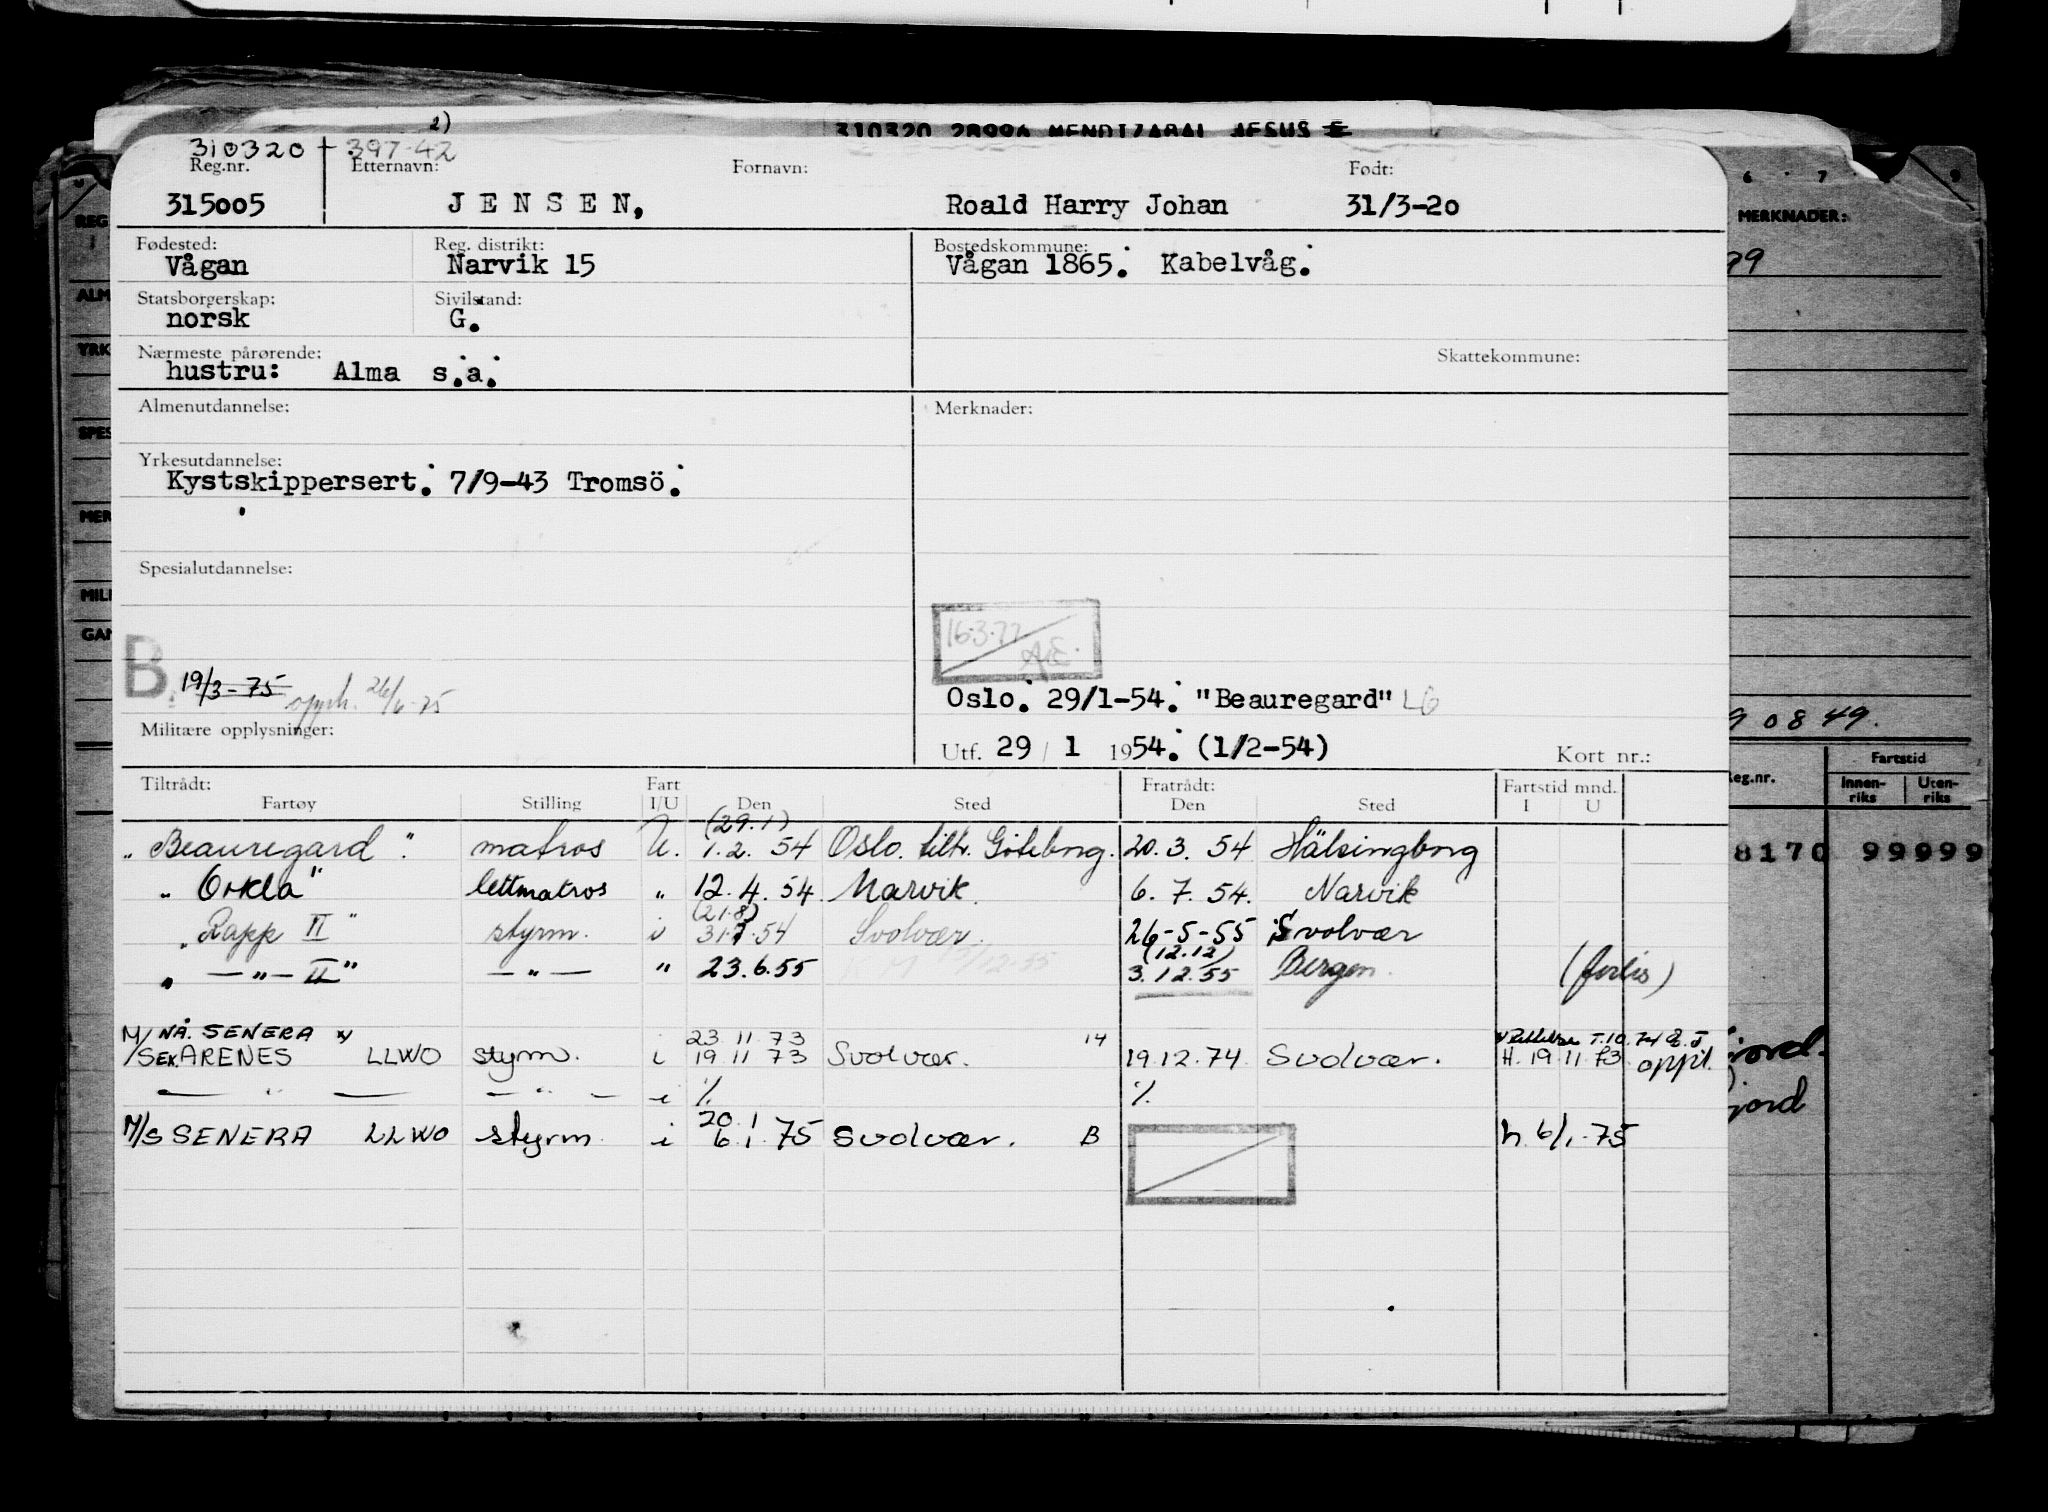 310320 28996 MENDIZABAL JESUS E
2)
310320 + 397-42
Reg.nr. Etternavn: Fornavn: Født:
315005 JENSEN, Roald Harry Johan 31/3-20
Fødested: Reg. distrikt: Bostedskommune:
Vågan Narvik 15 Vågan 1865. Kabelvåg.
Statsborgerskap: Sivilstand:
norsk G.
Nærmeste pårørende: Skattekommune:
hustru: Alma s.a.
Almenutdannelse: Merknader:
Yrkesutdannelse:
Kystskippersert. 7/9-43 Tromsö.
Spesialutdannelse:
16.3.77
B. 19/3-75 opph. 26/6-75
Oslo. 29/1-54. "Beauregard" LG
Militære opplysninger:
Utf. 29 / 1 1954. (1/2-54) Kort nr.:
Tiltrådt: Fart Fratrådt: Fartstid mnd.
Fartøy Stilling I/U Den Sted Den Sted I U
(29.1)
"Beauregard". matros U. 1.2. 54 Oslo. tiltr. Göteborg. 20.3. 54 Hälsingborg
"Orkla" lettmatros " 12.4.54. Narvik. 6.7.54. Narvik
(21.8)
"Rapp II" styrm. i 31.7.54 Svolvær. 26-5-55 Svolvær
(12.12)
" — " — II" — " — " 23.6.55 3.12.55 Bergen. (forlis)
NÅ. SENERA x) 23 11 73 14 T.10. 74
M/Sex. ARENES LLWO styrm. i 19 11 73 Svolvær. 19.12.74 Svolvær. H. 19 11 73
— " — — " — i %. %.
20 1
M/S SENERA LLWO styrm i 6.1.75 Svolvær. B h. 6/1.75
6 7 9
REG
MERKNADER:
99
ALM
YRK
SPES
MER
MILI
GAN
90849.
Reg.nr. Fartstid
Innen-riks Uten-riks
8170 99999